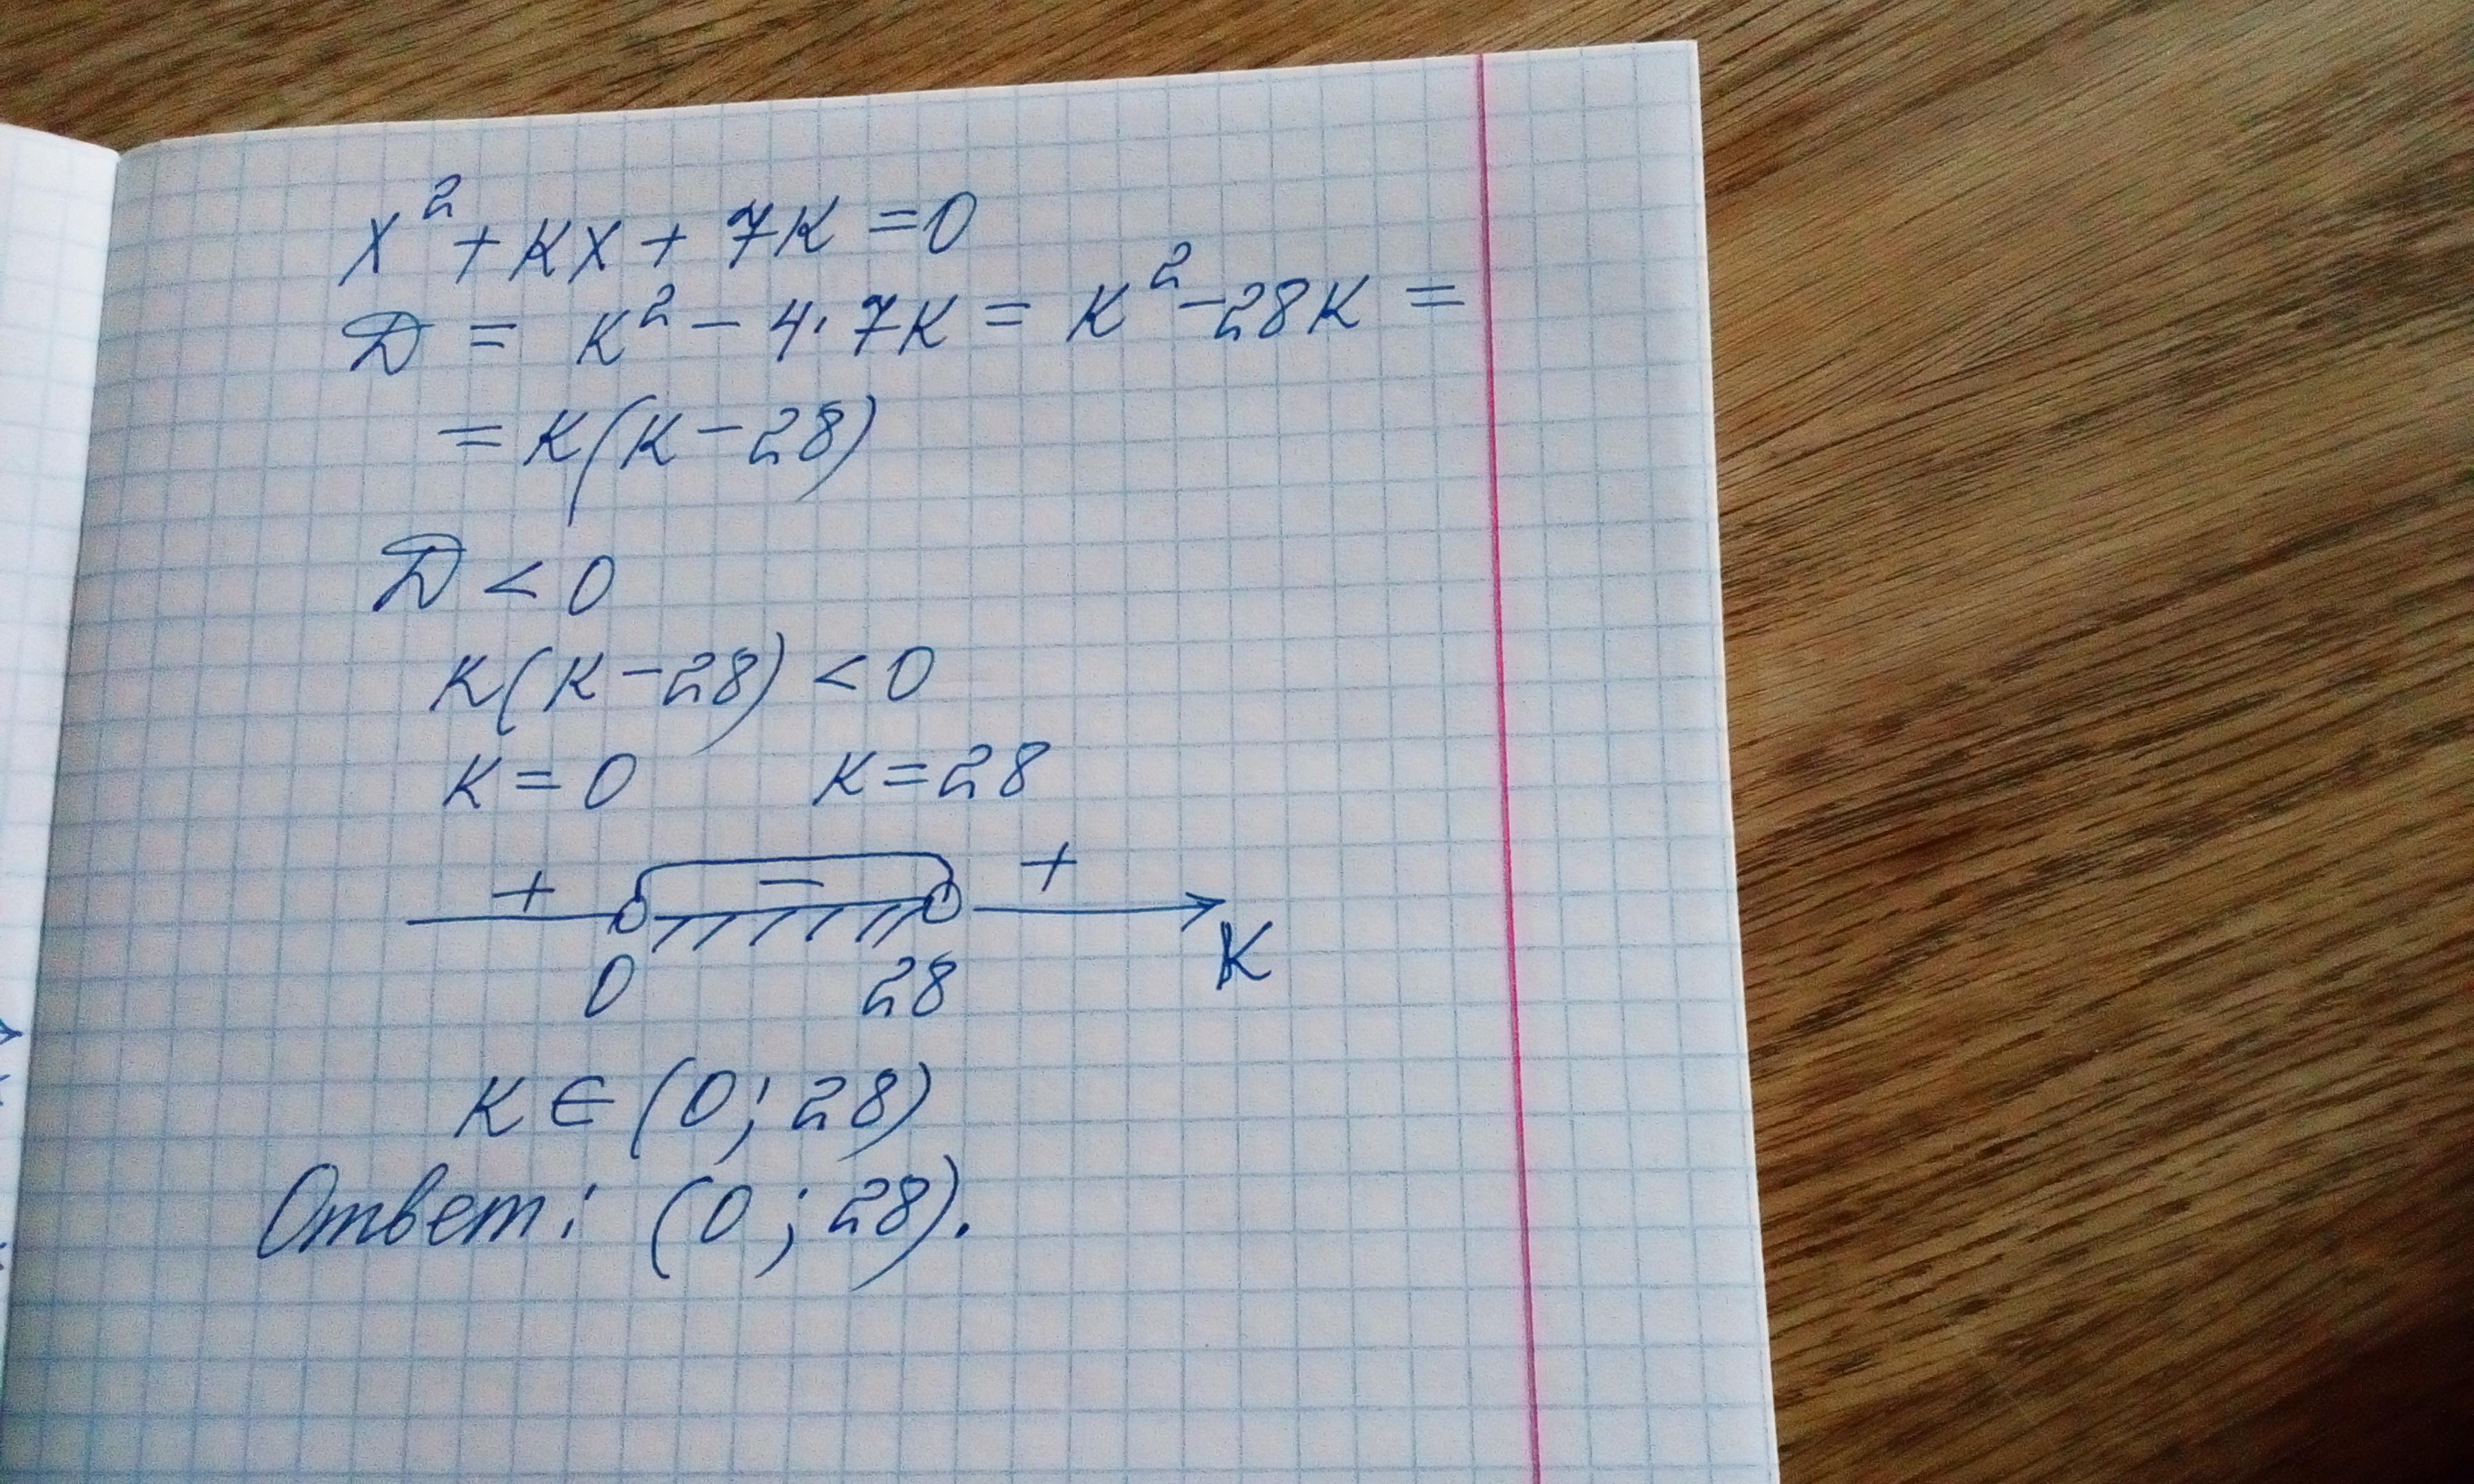 x² + kx + 7k = 0
D = k² - 4·7k = k² - 28k =
= k(k - 28)
D < 0
k(k - 28) < 0
k = 0 k = 28
+ - +
0 28 k
k ∈ (0; 28)
Ответ: (0; 28).